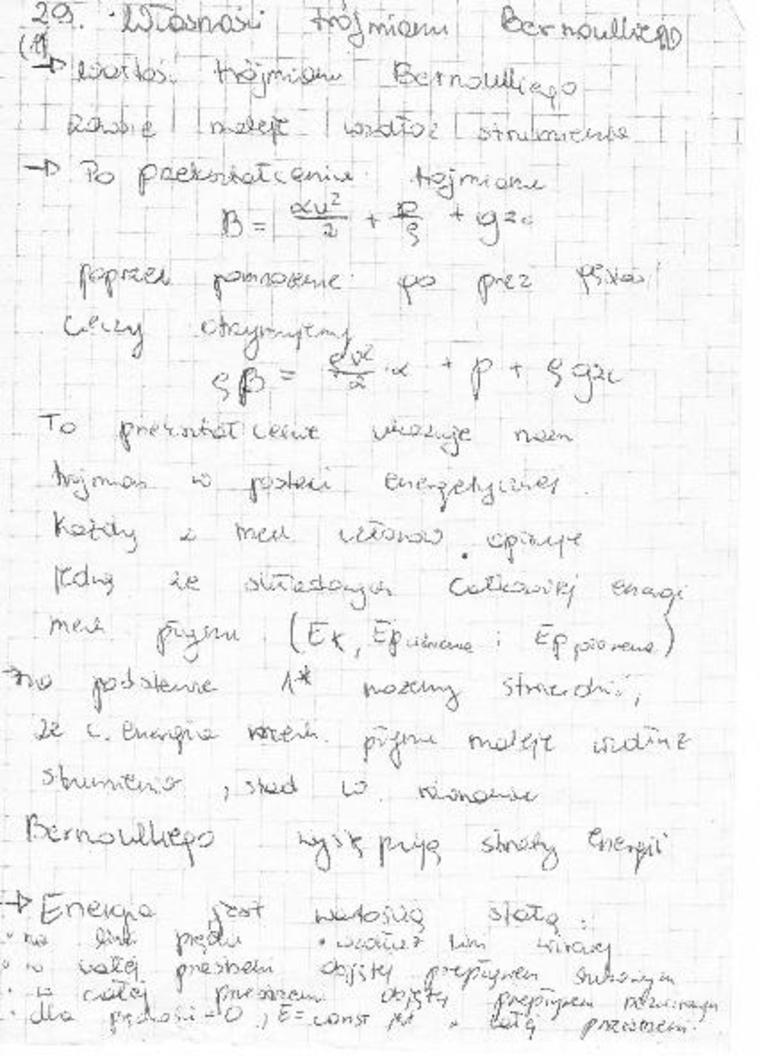 29. Własności trójmianu Bernoulliego
(1*)
→ Wartość trójmianu Bernoulliego
zawsze maleje wzdłuż strumienia
→ Po przekształceniu trójmianu
B = αv²/2 + p/ρ + gzc
poprzez pomnożenie go przez gęstość
cieczy otrzymujemy
ρB = ρv²/2 · α + p + ρgzc
To przekształcenie ukazuje nam
trójmian w postaci energetycznej.
Każdy z członów opisuje
jedną ze składowych całkowitej energi
mech płynu (Ek, Ep ciśnienia i Ep położenia)
→ na podstawie 1* możemy stwierdzić,
że c. energia mech. płynu maleje wzdłuż
strumienia, stąd w równaniu
Bernoulliego występują straty energii
→ Energia jest wartością stałą:
• na linii prądu • wzdłuż linii wirowej
• w całej przestrzeni objętej przepływem śrubowym
• w całej przestrzeni objętej przepływem niewirowym
• dla prędkości = 0, E = const jest w całej przestrzeni.